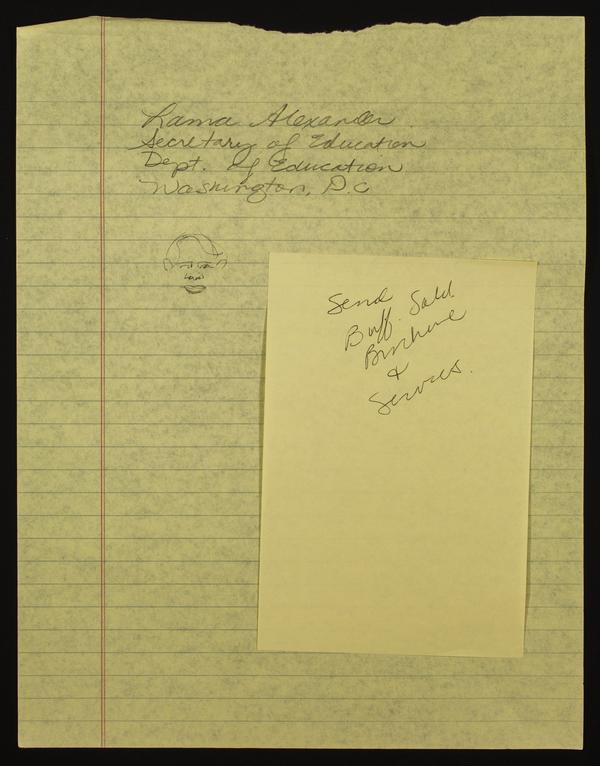 Lama Alexander.
Secretary of Education
Dept. of Education
Washington, D.C
Send
Buff. Sold.
Brochure
&
Services.